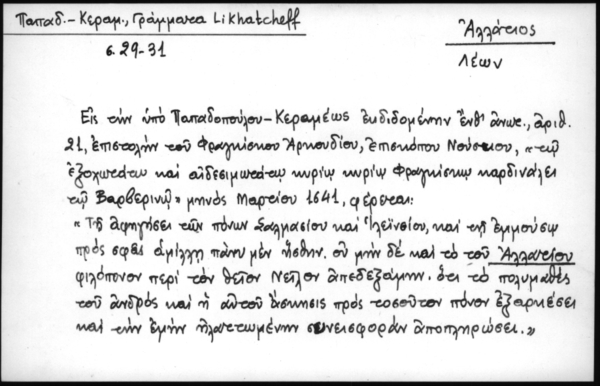 Παπαδ.-Κεραμ., Γράμματα Likhatcheff
Ἀλλάτιος
σ. 29-31
Λέων
Εἰς τὴν ὑπὸ Παπαδοπούλου-Κεραμέως ἐκδιδομένην ἔνθ' ἀνωτ., ἀριθ.
21, ἐπιστολὴν τοῦ Φραγκίσκου Ἀρκουδίου, ἐπισκόπου Νούσκου, «τῷ
ἐξοχωτάτῳ καὶ αἰδεσιμωτάτῳ κυρίῳ κυρίῳ Φραγκίσκῳ καρδινάλει
τῷ Βαρβερινῷ» μηνὸς Μαρτίου 1641, φέρεται:
«Τῇ ἀφηγήσει τῶν πόνων Σαλμασίου καὶ καὶ τῇ ἐμμούσῳ
πρὸς σφᾶς ἁμίλλῃ πάνυ μὲν ἥσθην. οὐ μὴν δὲ καὶ τὸ τοῦ Ἀλλατίου
φιλόπονον περὶ τὸν θεῖον Νεῖλον ἀπεδεξάμην. ὅτι τὸ πολυμαθὲς
τοῦ ἀνδρὸς καὶ ἡ αὐτοῦ ἄσκησις πρὸς τοσοῦτον πόνον ἐξαρκέσει
καὶ τὴν ἐμὴν ἠλαττωμένην συνεισφορὰν ἀποπληρώσει.»